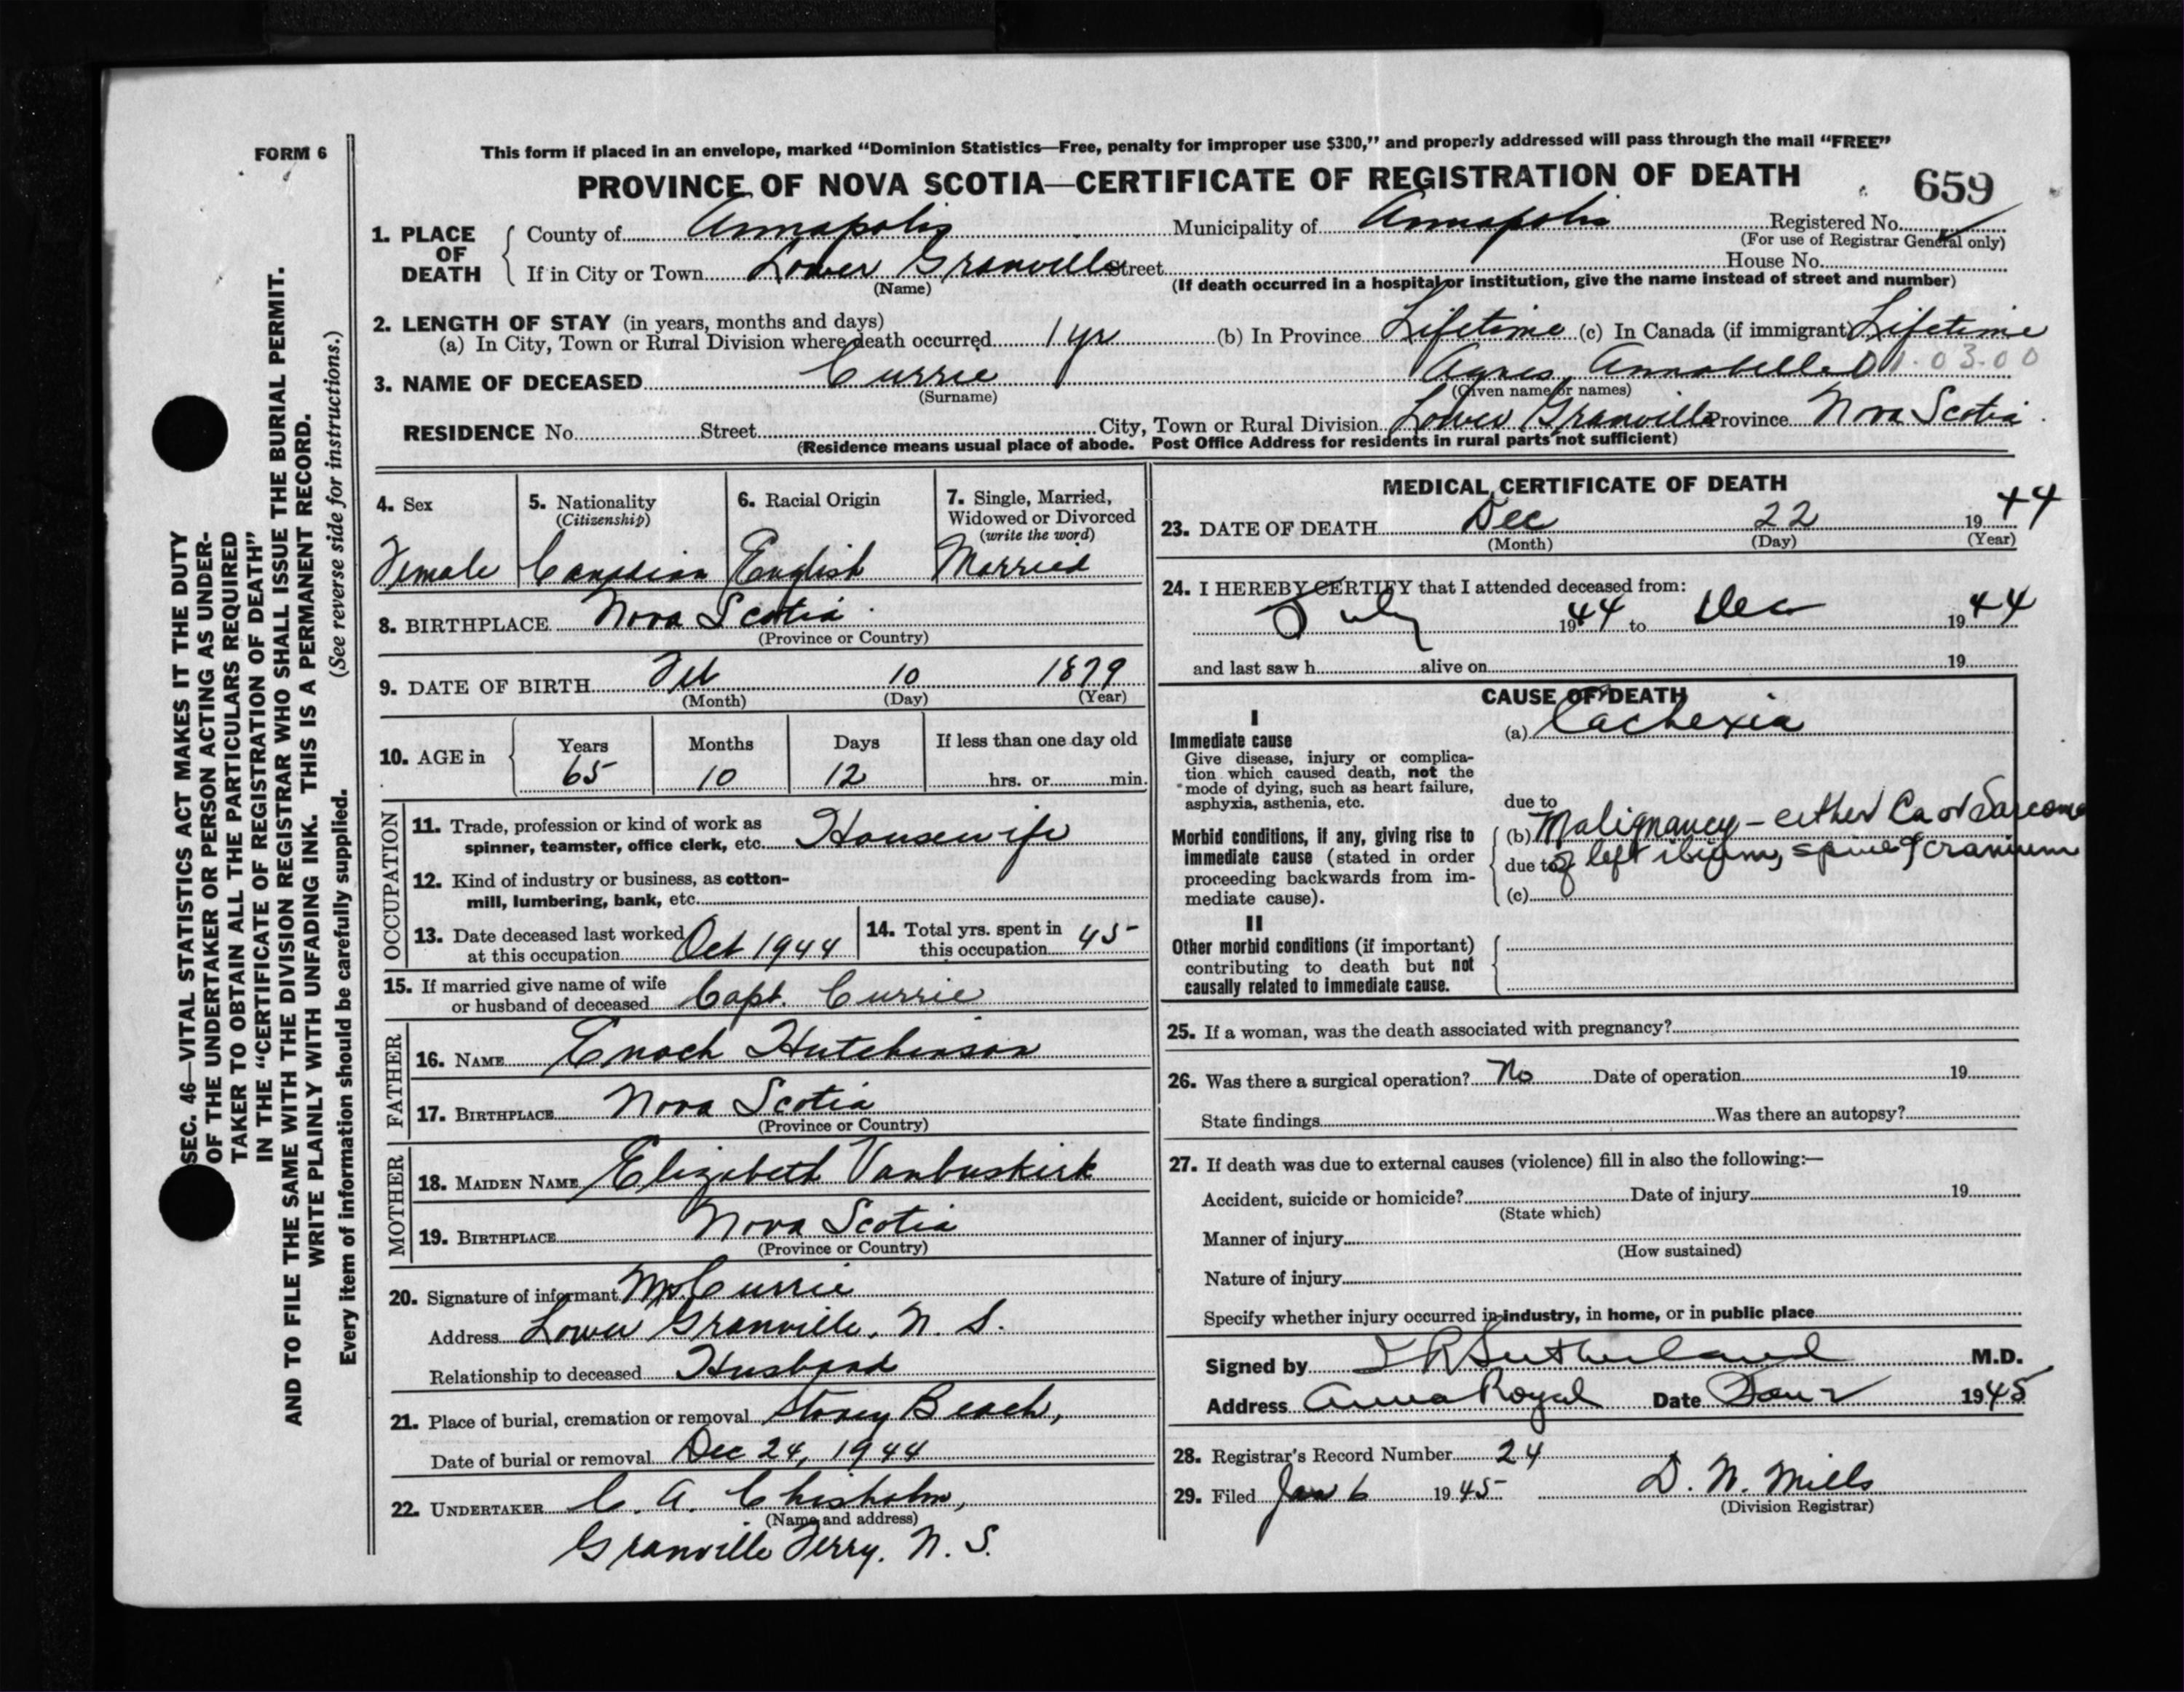 FORM 6
This form if placed in an envelope, marked “Dominion Statistics—Free, penalty for improper use $300,” and properly addressed will pass through the mail “FREE”
PROVINCE OF NOVA SCOTIA—CERTIFICATE OF REGISTRATION OF DEATH
659
1. PLACE OF DEATH
County of Annapolis Municipality of Annapolis Registered No.
(For use of Registrar General only)
If in City or Town Lower Granville Street House No.
(Name) (If death occurred in a hospital or institution, give the name instead of street and number)
2. LENGTH OF STAY (in years, months and days)
(a) In City, Town or Rural Division where death occurred 1 yr (b) In Province Lifetime (c) In Canada (if immigrant) Lifetime
3. NAME OF DECEASED Currie Agnes Annabelle 01.03.00
(Surname) (Given name or names)
RESIDENCE No. Street City, Town or Rural Division Lower Granville Province Nova Scotia
(Residence means usual place of abode. Post Office Address for residents in rural parts not sufficient)
4. Sex
Female
5. Nationality
(Citizenship)
Canadian
6. Racial Origin
English
7. Single, Married,
Widowed or Divorced
(write the word)
Married
8. BIRTHPLACE Nova Scotia
(Province or Country)
9. DATE OF BIRTH Feb 10 1879
(Month) (Day) (Year)
10. AGE in
Years Months Days If less than one day old
65 10 12 hrs. or min.
OCCUPATION
11. Trade, profession or kind of work as
spinner, teamster, office clerk, etc. Housewife
12. Kind of industry or business, as cotton-
mill, lumbering, bank, etc.
13. Date deceased last worked
at this occupation Oct 1944
14. Total yrs. spent in
this occupation 45
15. If married give name of wife
or husband of deceased Capt. Currie
FATHER
16. NAME Enoch Hutchinson
17. BIRTHPLACE Nova Scotia
(Province or Country)
MOTHER
18. MAIDEN NAME Elizabeth Vanbuskirk
19. BIRTHPLACE Nova Scotia
(Province or Country)
20. Signature of informant Currie
Address Lower Granville, N. S.
Relationship to deceased Husband
21. Place of burial, cremation or removal Stoney Beach,
Date of burial or removal Dec 24, 1944
22. UNDERTAKER C. A. Chisholm,
(Name and address)
Granville Ferry. N. S.
MEDICAL CERTIFICATE OF DEATH
23. DATE OF DEATH Dec 22 1944
(Month) (Day) (Year)
24. I HEREBY CERTIFY that I attended deceased from:
July 1944 to Dec 1944
and last saw h alive on 19
CAUSE OF DEATH
I
Immediate cause
Give disease, injury or complica-
tion which caused death, not the
mode of dying, such as heart failure,
asphyxia, asthenia, etc.
(a) Cachexia
due to
Morbid conditions, if any, giving rise to
immediate cause (stated in order
proceeding backwards from im-
mediate cause).
(b) Malignancy – either Ca or Sarcoma
due to of left ibium, spine & cranium
(c)
II
Other morbid conditions (if important)
contributing to death but not
causally related to immediate cause.
25. If a woman, was the death associated with pregnancy?
26. Was there a surgical operation? No Date of operation 19
State findings Was there an autopsy?
27. If death was due to external causes (violence) fill in also the following:—
Accident, suicide or homicide? Date of injury 19
(State which)
Manner of injury
(How sustained)
Nature of injury
Specify whether injury occurred in industry, in home, or in public place
Signed by Sutherland M.D.
Address Anna Royal Date Jan 2 1945
28. Registrar's Record Number 24
29. Filed Jan 6 1945 D. W. Mills
(Division Registrar)
SEC. 46—VITAL STATISTICS ACT MAKES IT THE DUTY
OF THE UNDERTAKER OR PERSON ACTING AS UNDER-
TAKER TO OBTAIN ALL THE PARTICULARS REQUIRED
IN THE “CERTIFICATE OF REGISTRATION OF DEATH”
AND TO FILE THE SAME WITH THE DIVISION REGISTRAR WHO SHALL ISSUE THE BURIAL PERMIT.
WRITE PLAINLY WITH UNFADING INK. THIS IS A PERMANENT RECORD.
Every item of information should be carefully supplied. (See reverse side for instructions.)